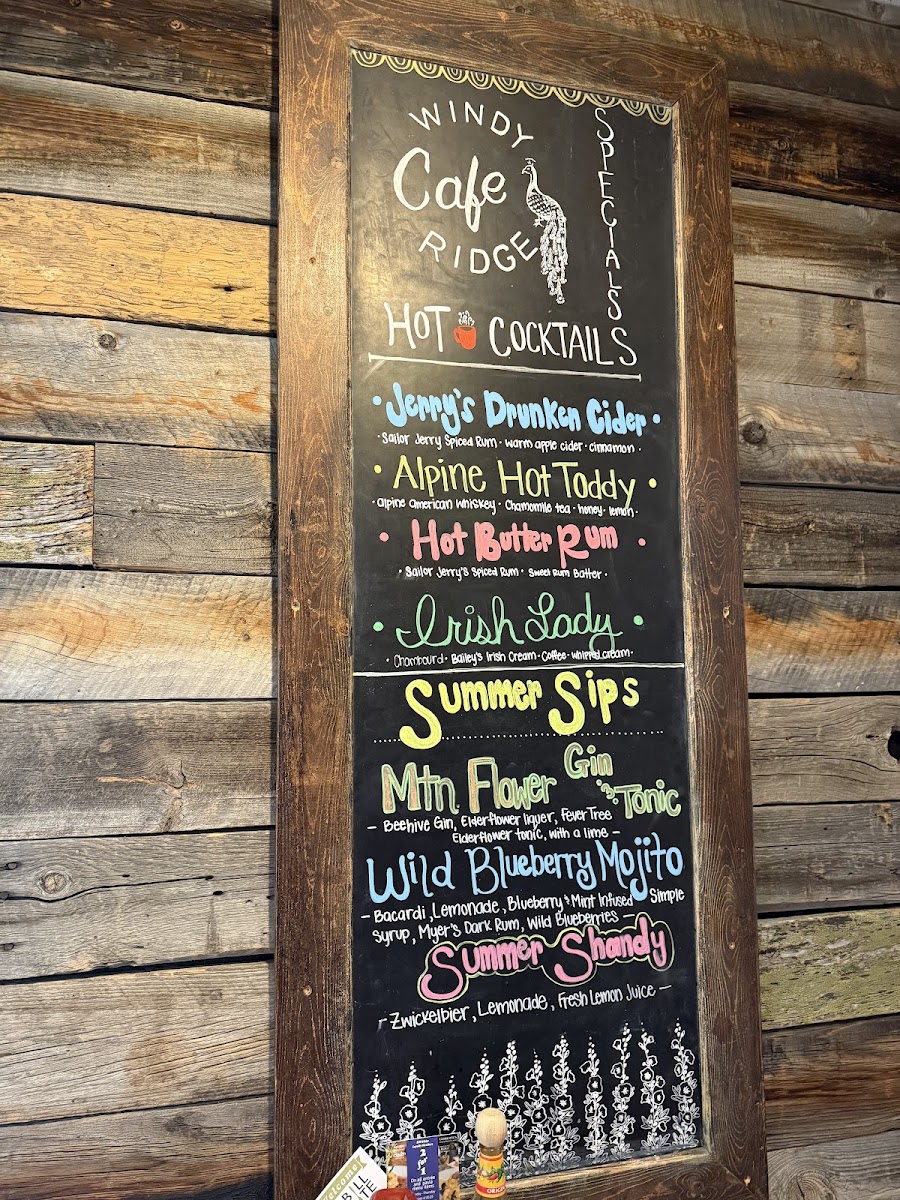 WINDY
Cafe
RIDGE
SPECIALS
HOT COCKTAILS
• Jerry's Drunken Cider •
• Sailor Jerry Spiced Rum • warm apple cider • cinnamon •
• Alpine Hot Toddy •
• alpine american whiskey • Chamomile tea • honey • lemon •
• Hot Butter Rum •
• Sailor Jerry's Spiced Rum • Sweet Rum Batter •
• Irish Lady •
• Chambourd • Bailey's Irish Cream • Coffee • whipped cream •
Summer Sips
Mtn. Flower Gin 'n' Tonic
— Beehive Gin, Elderflower liquer, Fever Tree
Elderflower tonic, with a lime —
Wild Blueberry Mojito
— Bacardi, Lemonade, Blueberry & Mint Infused Simple
Syrup, Myer's Dark Rum, Wild Blueberries —
Summer Shandy
— Zwickelbier, Lemonade, Fresh Lemon Juice —
welcome!
BILL
2 for 1